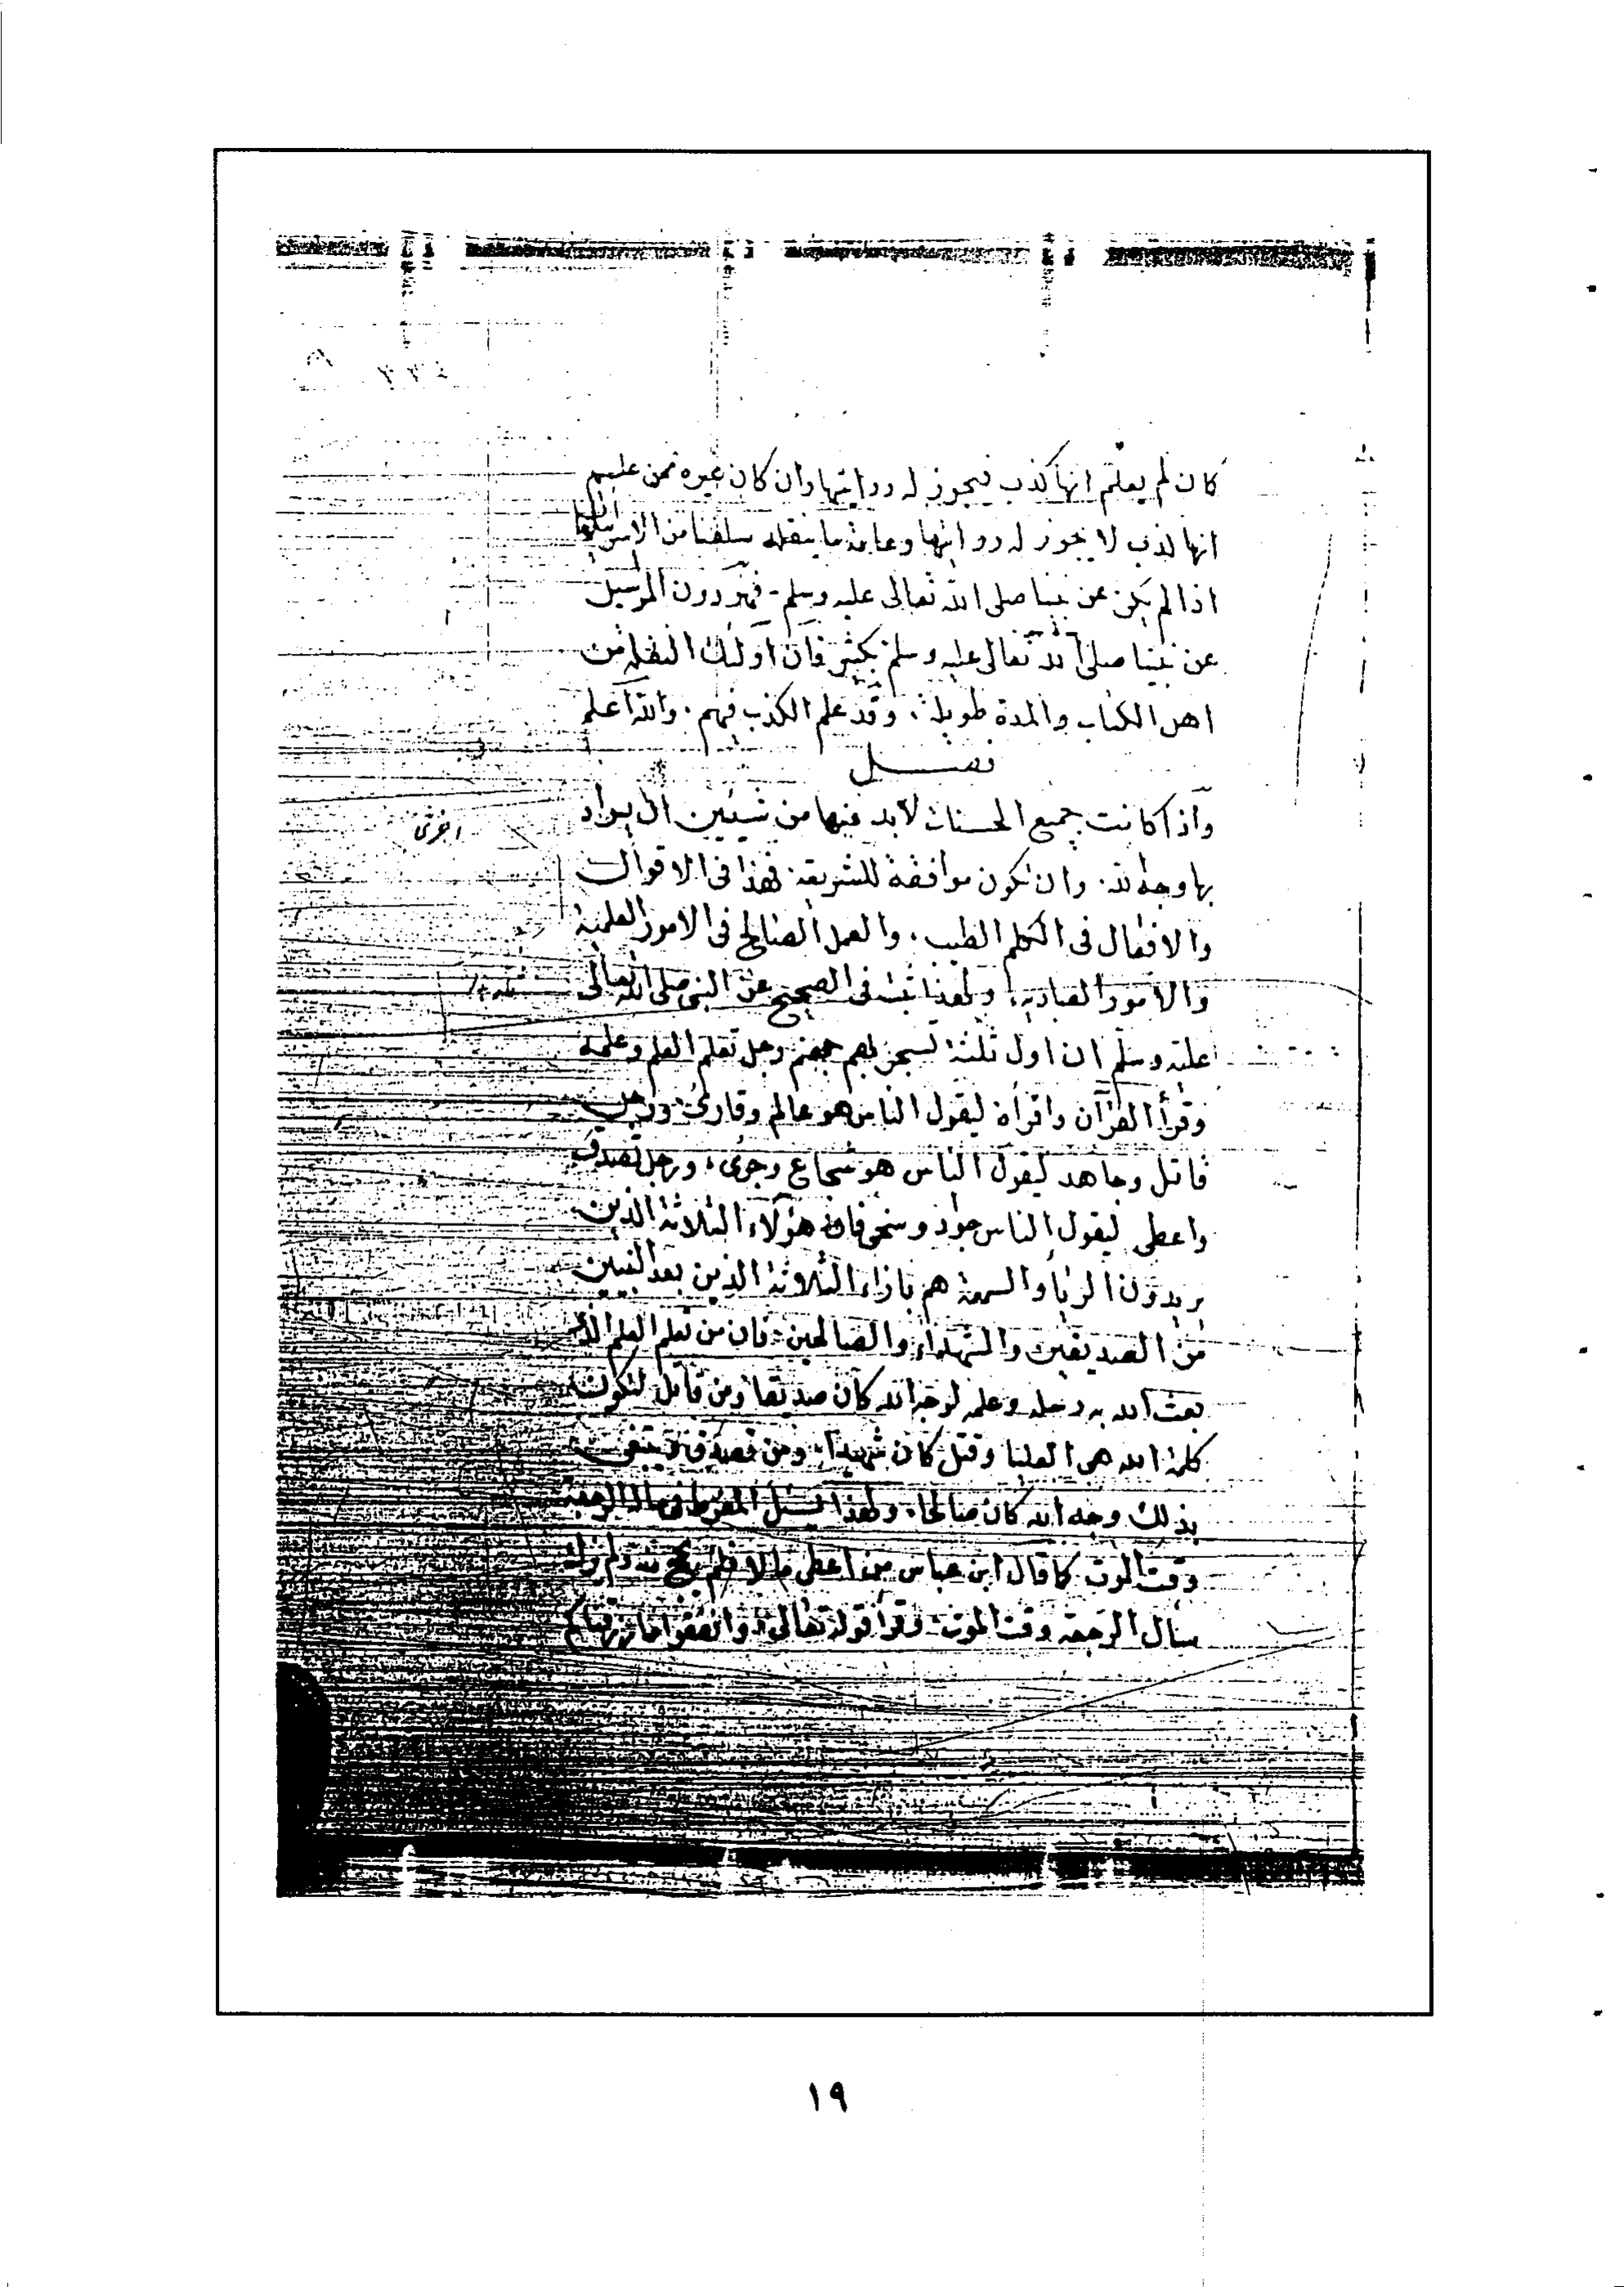 كان لم يعلم انها كذب فيجوز له روايتها وان كان غيره ممن علم
انها كذب لا يجوز له روايتها وعامة ما ينقله سلفنا من الاسرائيليات
اذا لم يكن عن نبينا صلى الله تعالى عليه وسلم فهو دون المرسيل
عن نبينا صلى الله تعالى عليه وسلم بكثير فان اولئك النقلة من
اهل الكتاب والمدة طويلة وقد علم الكذب فيهم . والله اعلم
فصل
واذا كانت جميع الحسنات لابد فيها من شيئين ان يراد
بها وجه الله . وان تكون موافقة للشريعة فهذا فى الاقوال
والافعال فى الكلم الطيب . والعمل الصالح فى الامور العلمية
والامور العبادية . ولهذا ثبت فى الصحيح عن النبى صلى الله تعالى
عليه وسلم ان اول ثلثة تسجر بهم جهنم رجل تعلم العلم وعلمه
وقرأ القرآن واقرأه ليقول الناس هو عالم وقارئ ورجل
قاتل وجاهد ليقول الناس هو شجاع وجرئ ، ورجل تصدق
واعطى ليقول الناس جواد وسخى فان هؤلاء الثلاثة الذين
يريدون الريا والسمعة هم بازاء الثلاثة الذين بعد النبيين
من الصديقين والشهداء والصالحين فان من تعلم العلم الذى
بعث الله به رسله وعلمه لوجه الله كان صديقا ومن قاتل لتكون
كلمة الله هى العليا وقتل كان شهيدا ومن تصدق يبتغى
بذلك وجه الله كان صالحا . ولهذا يسئل المفرط فى ماله الرجعة
وقت الموت كما قال ابن عباس من اعطى مالا فلم يحج منه ولم يزك
سأل الرجعة وقت الموت وقرأ قوله تعالى وانفقوا مما رزقناكم
اخرى
١٩